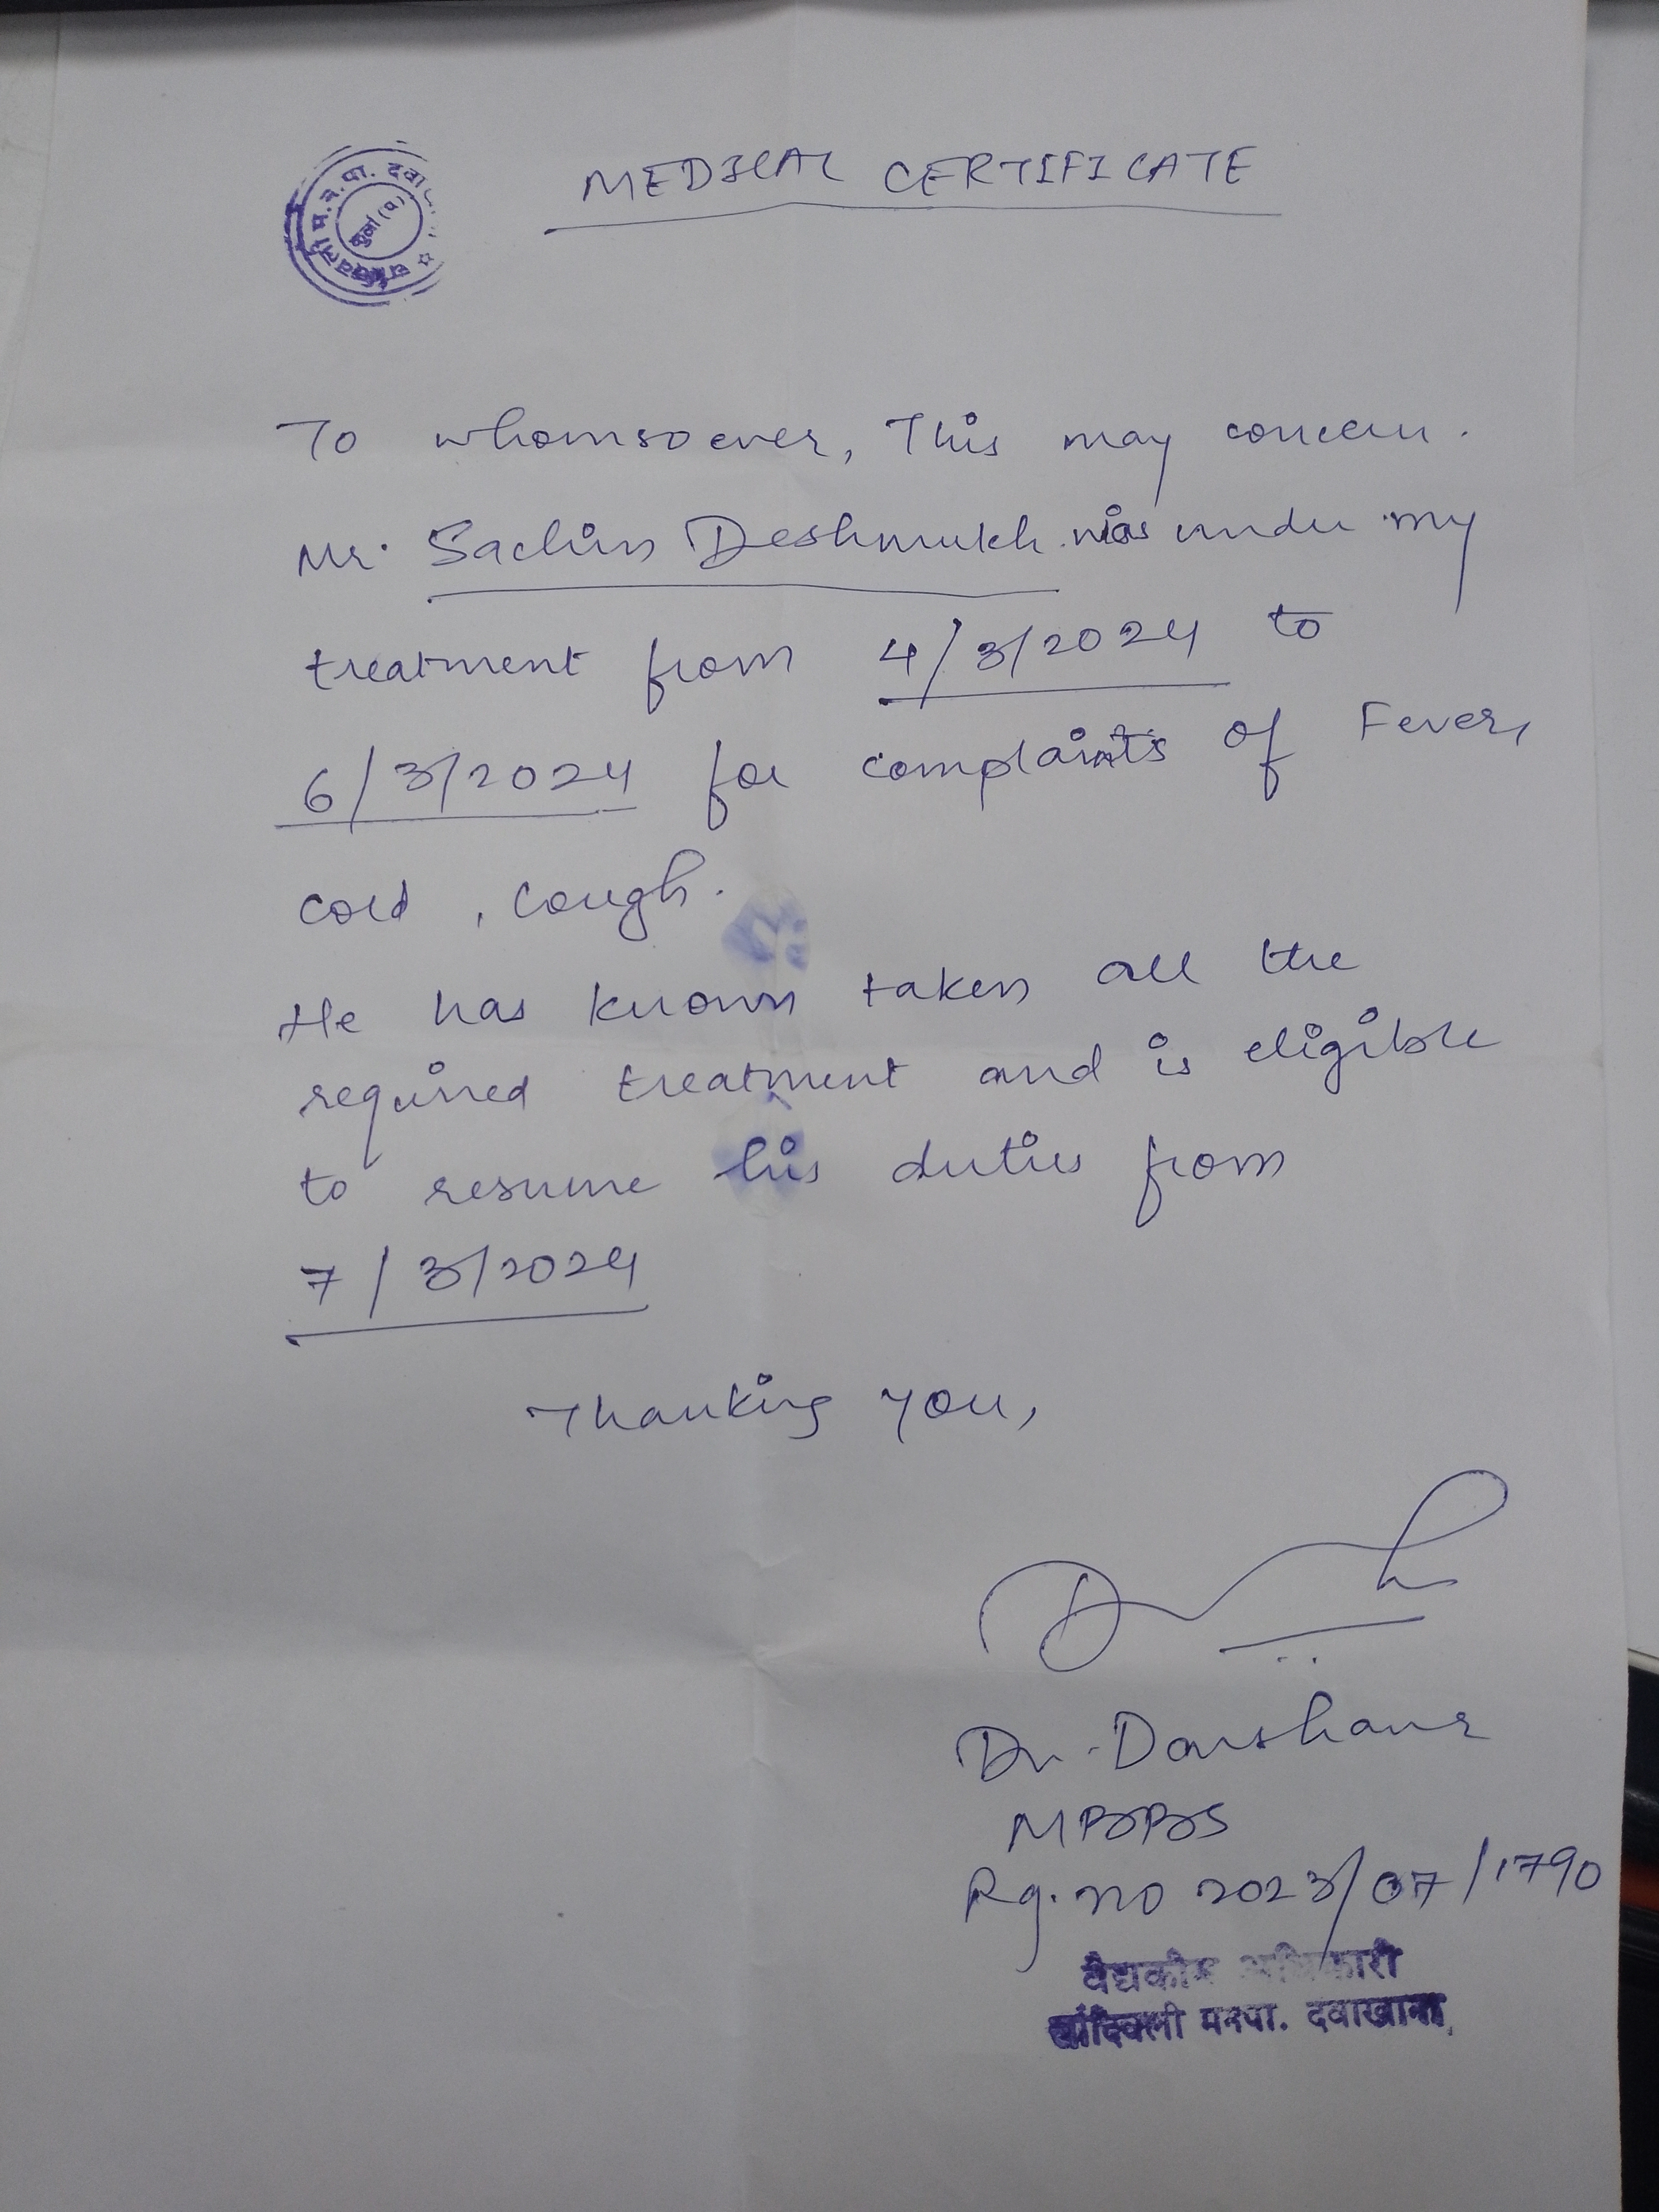 MEDICAL CERTIFICATE
म.न.पा. दवा
कुर्ला (प)
To whomsoever, This may concern.
Mr. Sachin Deshmukh was under my
treatment from 4/3/2024 to
6/3/2024 for complaints of Fever,
cold, cough.
He has known taken all the
required treatment and is eligible
to resume his duties from
7/3/2024
Thanking you,
Dr. Darshana
MBBS
Rg. no 2023/07/1790
वैद्यकीय अधिकारी
मनपा. दवाखाना